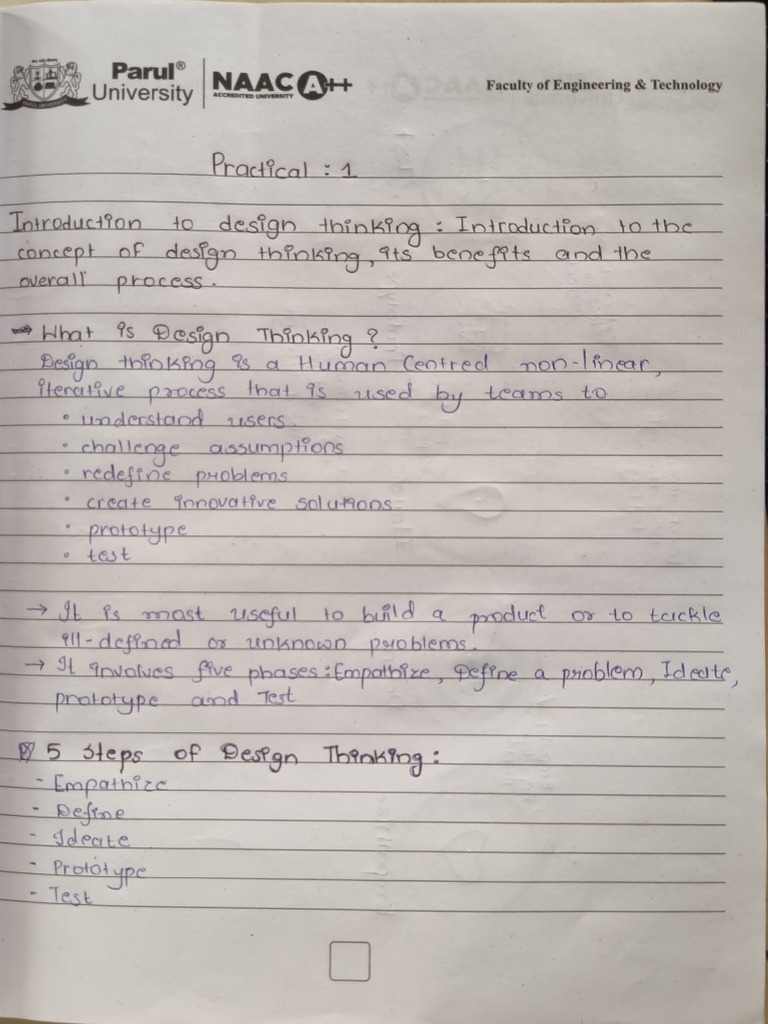 Parul® University
NAAC A++
ACCREDITED UNIVERSITY
Faculty of Engineering & Technology
Practical : 1
Introduction to design thinking : Introduction to the
concept of design thinking, its benefits and the
overall process.
→ What is Design Thinking ?
Design thinking is a Human Centred non-linear,
iterative process that is used by teams to
• understand users.
• challenge assumptions
• redefine problems
• create innovative solutions
• prototype
• test
→ It is most useful to build a product or to tackle
ill-defined or unknown problems.
→ It involves five phases : Empathize, Define a problem, Ideate,
prototype and Test
5 Steps of Design Thinking :
- Empathize
- Define
- Ideate
- Prototype
- Test